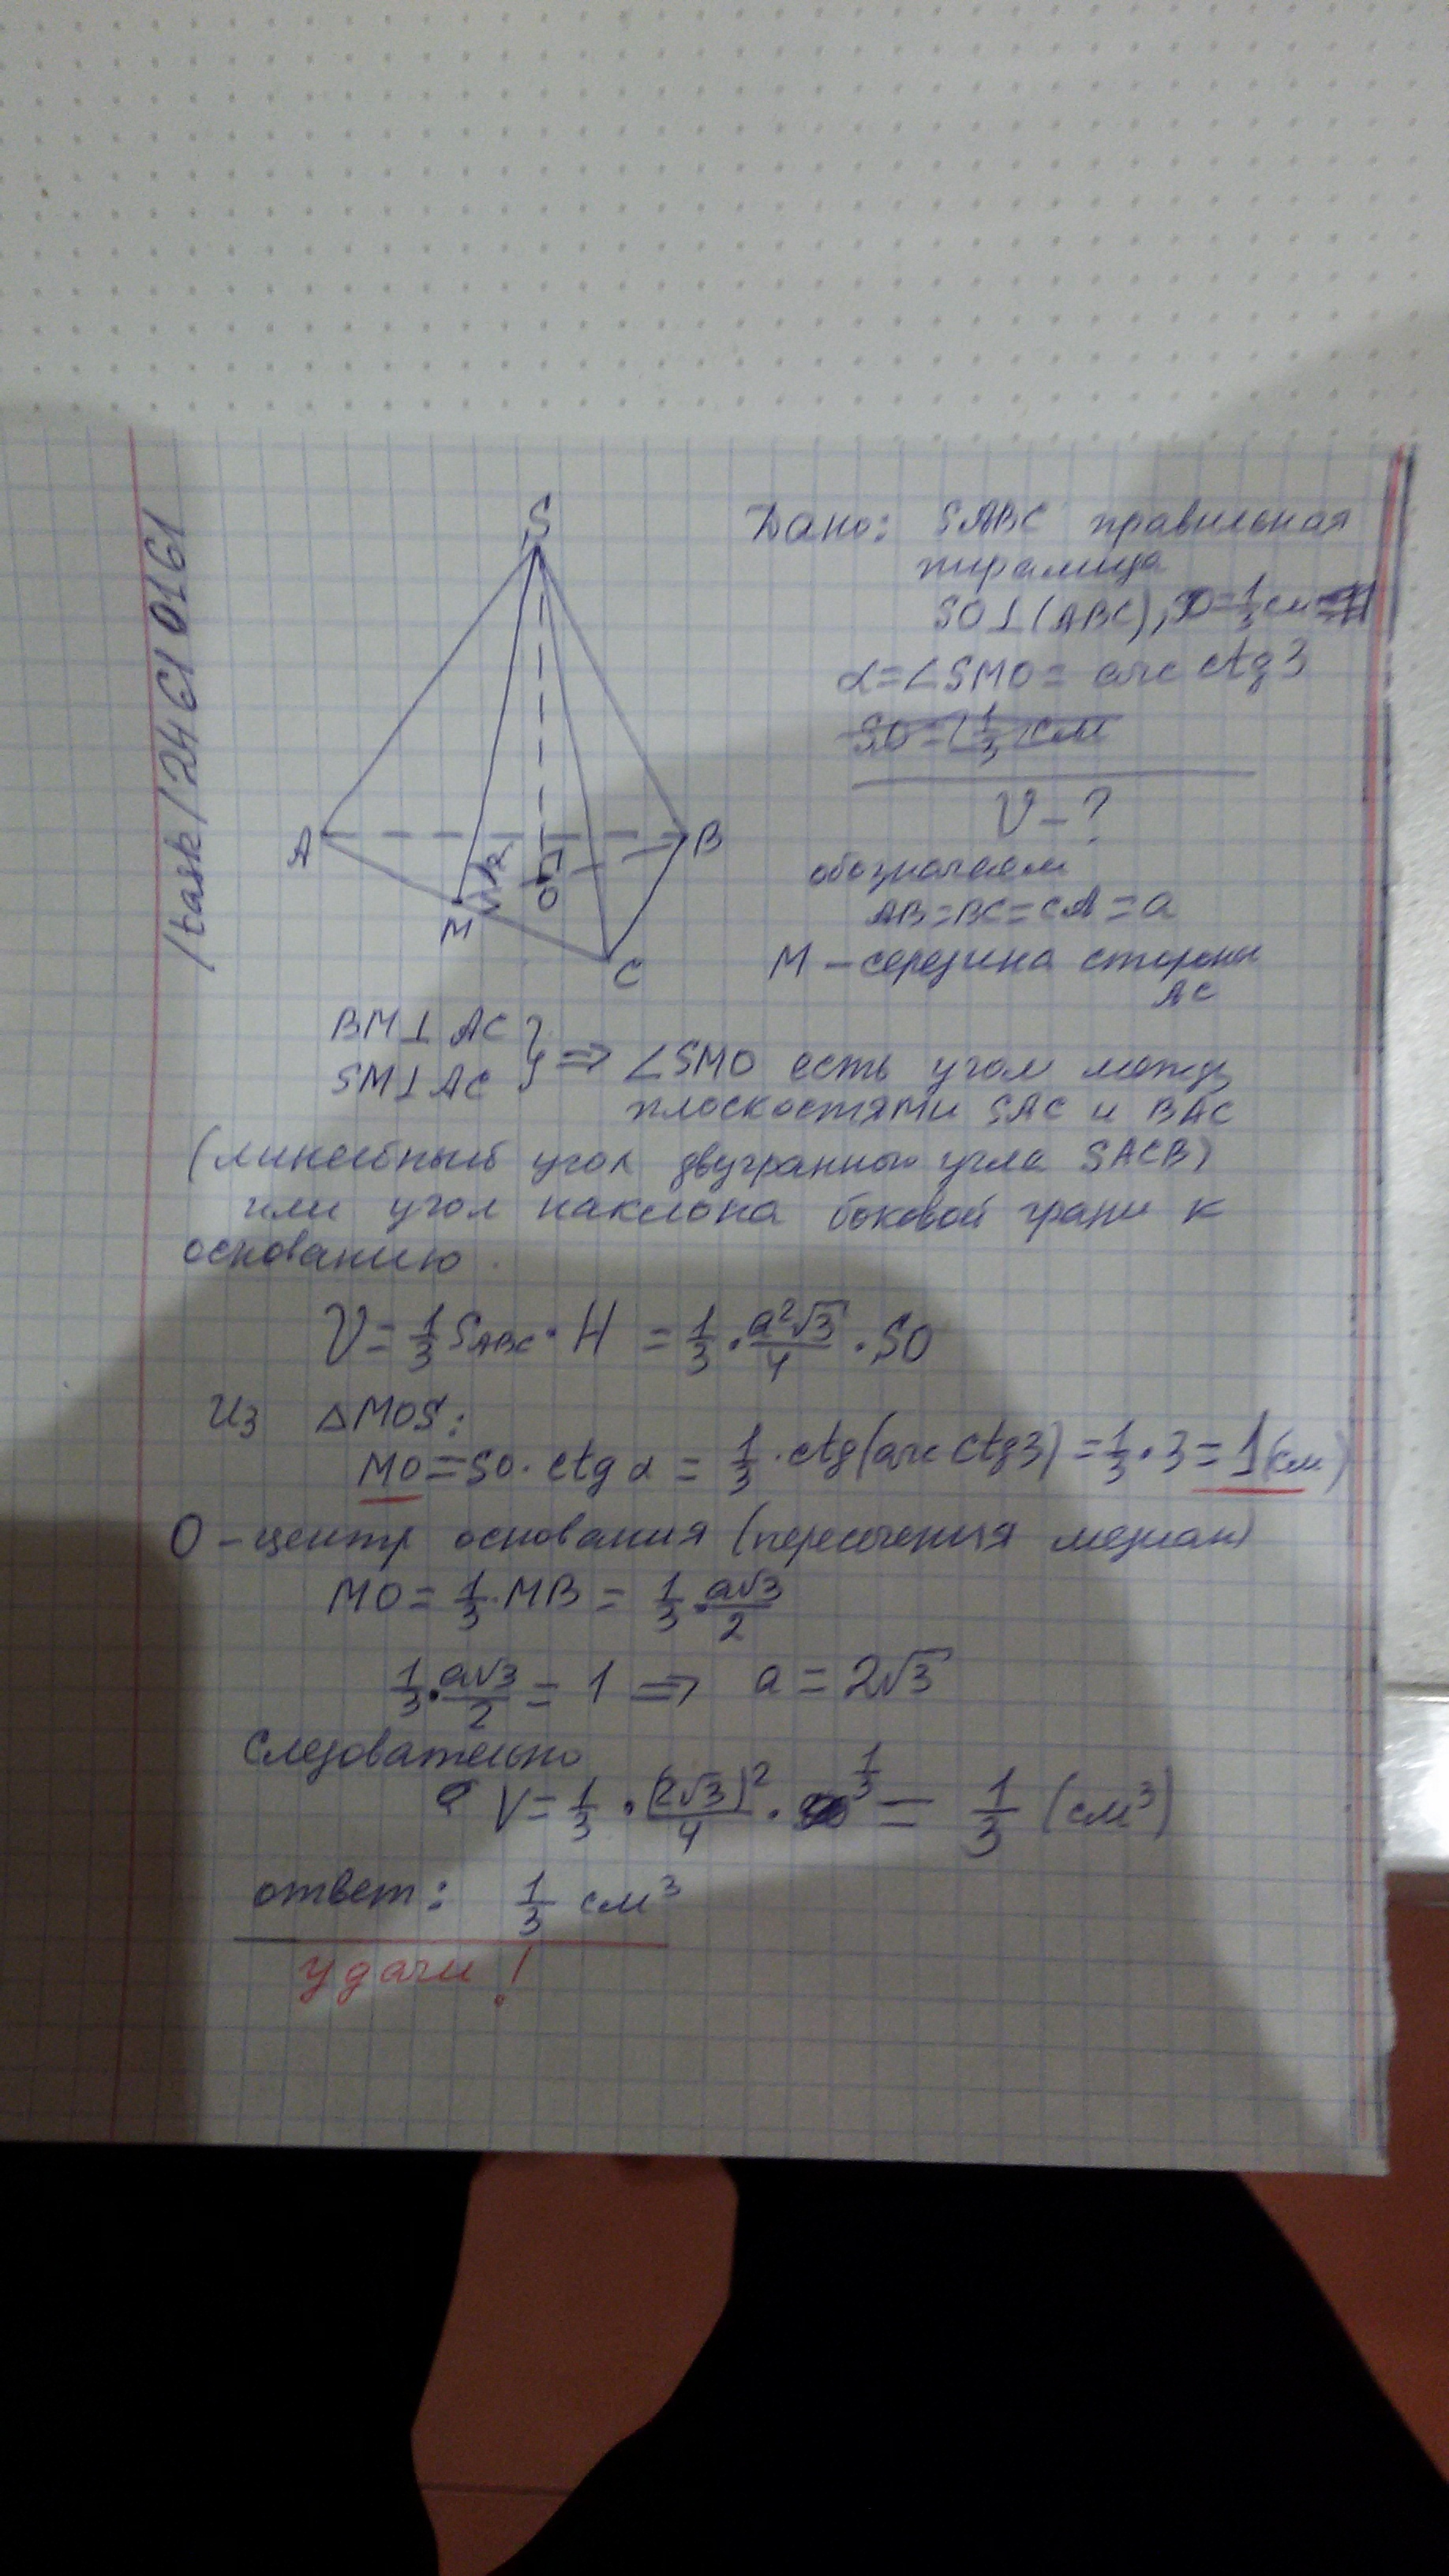 /task/24610161
S
A
B
M
O
C
α
Дано: SABC правильная
пирамида
SO⊥(ABC), SO=1/3 см
α=∠SMO= arc ctg3
SO= 1/3 см
V-?
обозначаем
AB=BC=CA=a
M - середина стороны
AC
BM⊥AC
SM⊥AC } ⇒ ∠SMO есть угол между
плоскостями SAC и BAC
(линейный угол двугранного угла SACB)
или угол наклона боковой грани к
основанию.
V= 1/3 S_ABC · H = 1/3 · a²√3/4 · SO
Из △MOS:
MO=SO·ctgα = 1/3 · ctg(arc ctg3) = 1/3 · 3 = 1(см)
O - центр основания (пересечения медиан)
MO= 1/3 · MB = 1/3 · a√3/2
1/3 · a√3/2 = 1 ⇒ a = 2√3
Следовательно
V= 1/3 · (2√3)²/4 · 1/3 = 1/3 (см³)
ответ: 1/3 см³
удачи!